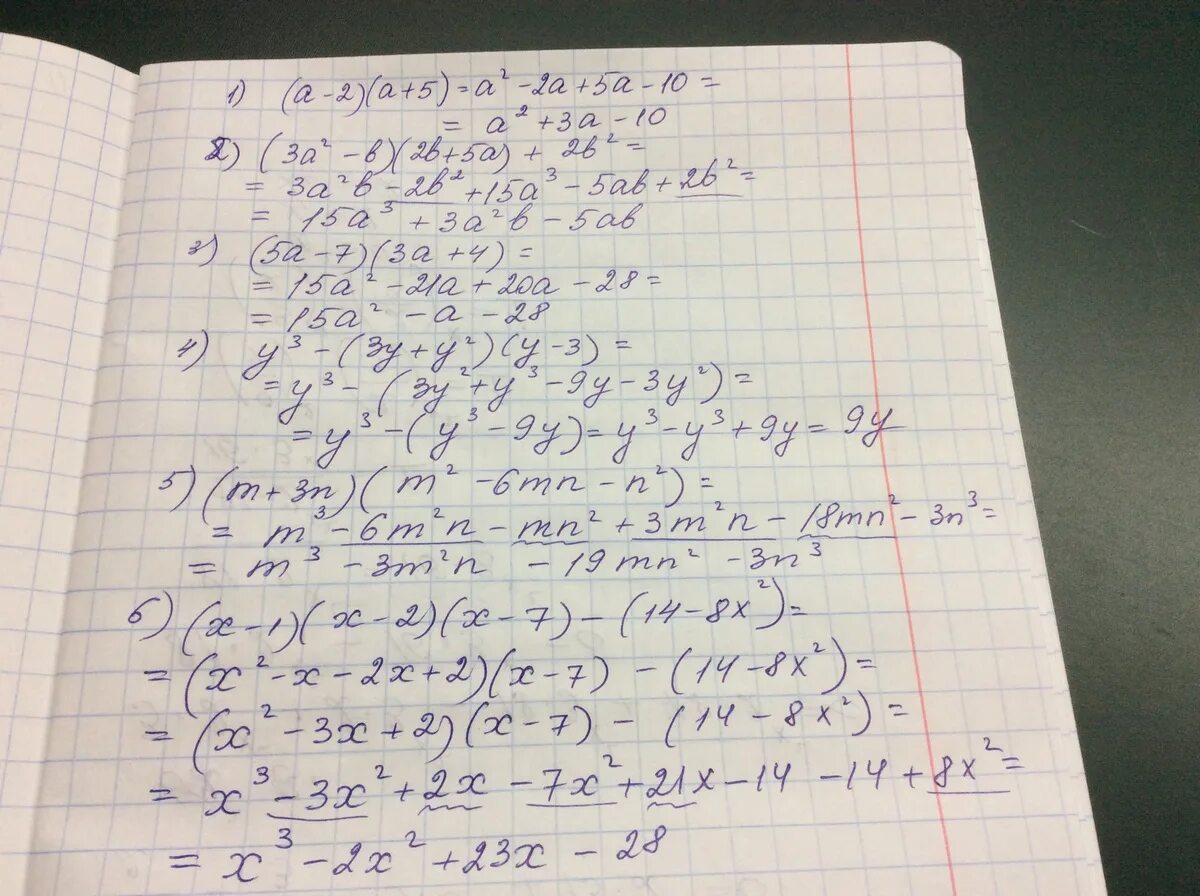 1) (a-2)(a+5) = a² - 2a + 5a - 10 =
= a² + 3a - 10
2) (3a² - b)(2b+5a) + 2b² =
= 3a²b - 2b² + 15a³ - 5ab + 2b² =
= 15a³ + 3a²b - 5ab
3) (5a-7)(3a+4) =
= 15a² - 21a + 20a - 28 =
= 15a² - a - 28
4) y³ - (3y+y²)(y-3) =
= y³ - (3y² + y³ - 9y - 3y²) =
= y³ - (y³ - 9y) = y³ - y³ + 9y = 9y
5) (m+3n)(m² - 6mn - n²) =
= m³ - 6m²n - mn² + 3m²n - 18mn² - 3n³ =
= m³ - 3m²n - 19mn² - 3n³
6) (x-1)(x-2)(x-7) - (14-8x²) =
= (x² - x - 2x + 2)(x-7) - (14-8x²) =
= (x² - 3x + 2)(x-7) - (14-8x²) =
= x³ - 3x² + 2x - 7x² + 21x - 14 - 14 + 8x² =
= x³ - 2x² + 23x - 28